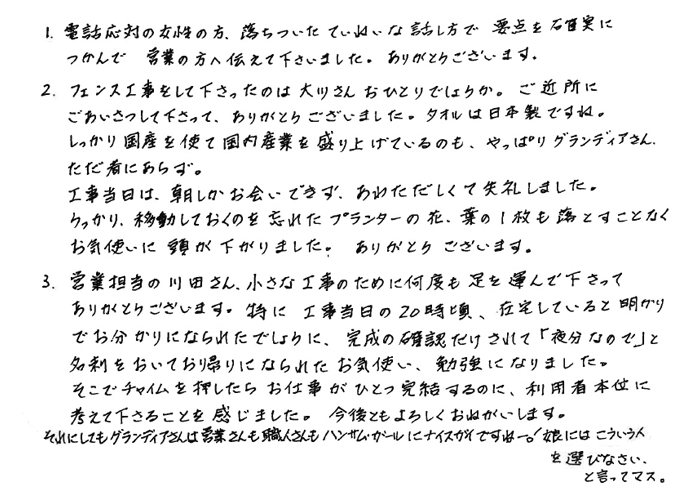 1. 電話応対の女性の方、落ちついた ていねいな 話し方で 要点を確実に
つかんで 営業の方へ伝えて下さいました。ありがとうございます。
2. フェンス工事をして下さったのは 大川さん おひとりでしょうか。ご近所に
ごあいさつして下さって、ありがとうございました。タオルは日本製ですね。
しっかり国産を使て国内産業を盛り上げているのも、やっぱりグランディアさん、
ただ者にあらず。
工事当日は、朝しかお会いできず、あわただしくて失礼しました。
うっかり、移動しておくのを忘れたプランターの花、葉の1枚も落とすことなく
お気使いに 頭が下がりました。 ありがとうございます。
3. 営業担当の川田さん、小さな工事のために何度も足を運んで下さって
ありがとうございます。特に 工事当日の20時頃、在宅していると明かり
でお分かりになられたでしょうに、完成の確認だけされて「夜分なので」と
名刺をおいてお帰りになられたお気使い、勉強になりました。
そこでチャイムを押したらお仕事がひとつ完結するのに、利用者本位に
考えて下さることを感じました。今後ともよろしくおねがいします。
それにしてもグランディアさんは営業さんも職人さんもハンサム・ガールにナイスガイですねー。！娘にはこういう人
を選びなさい、
と言ってマス。